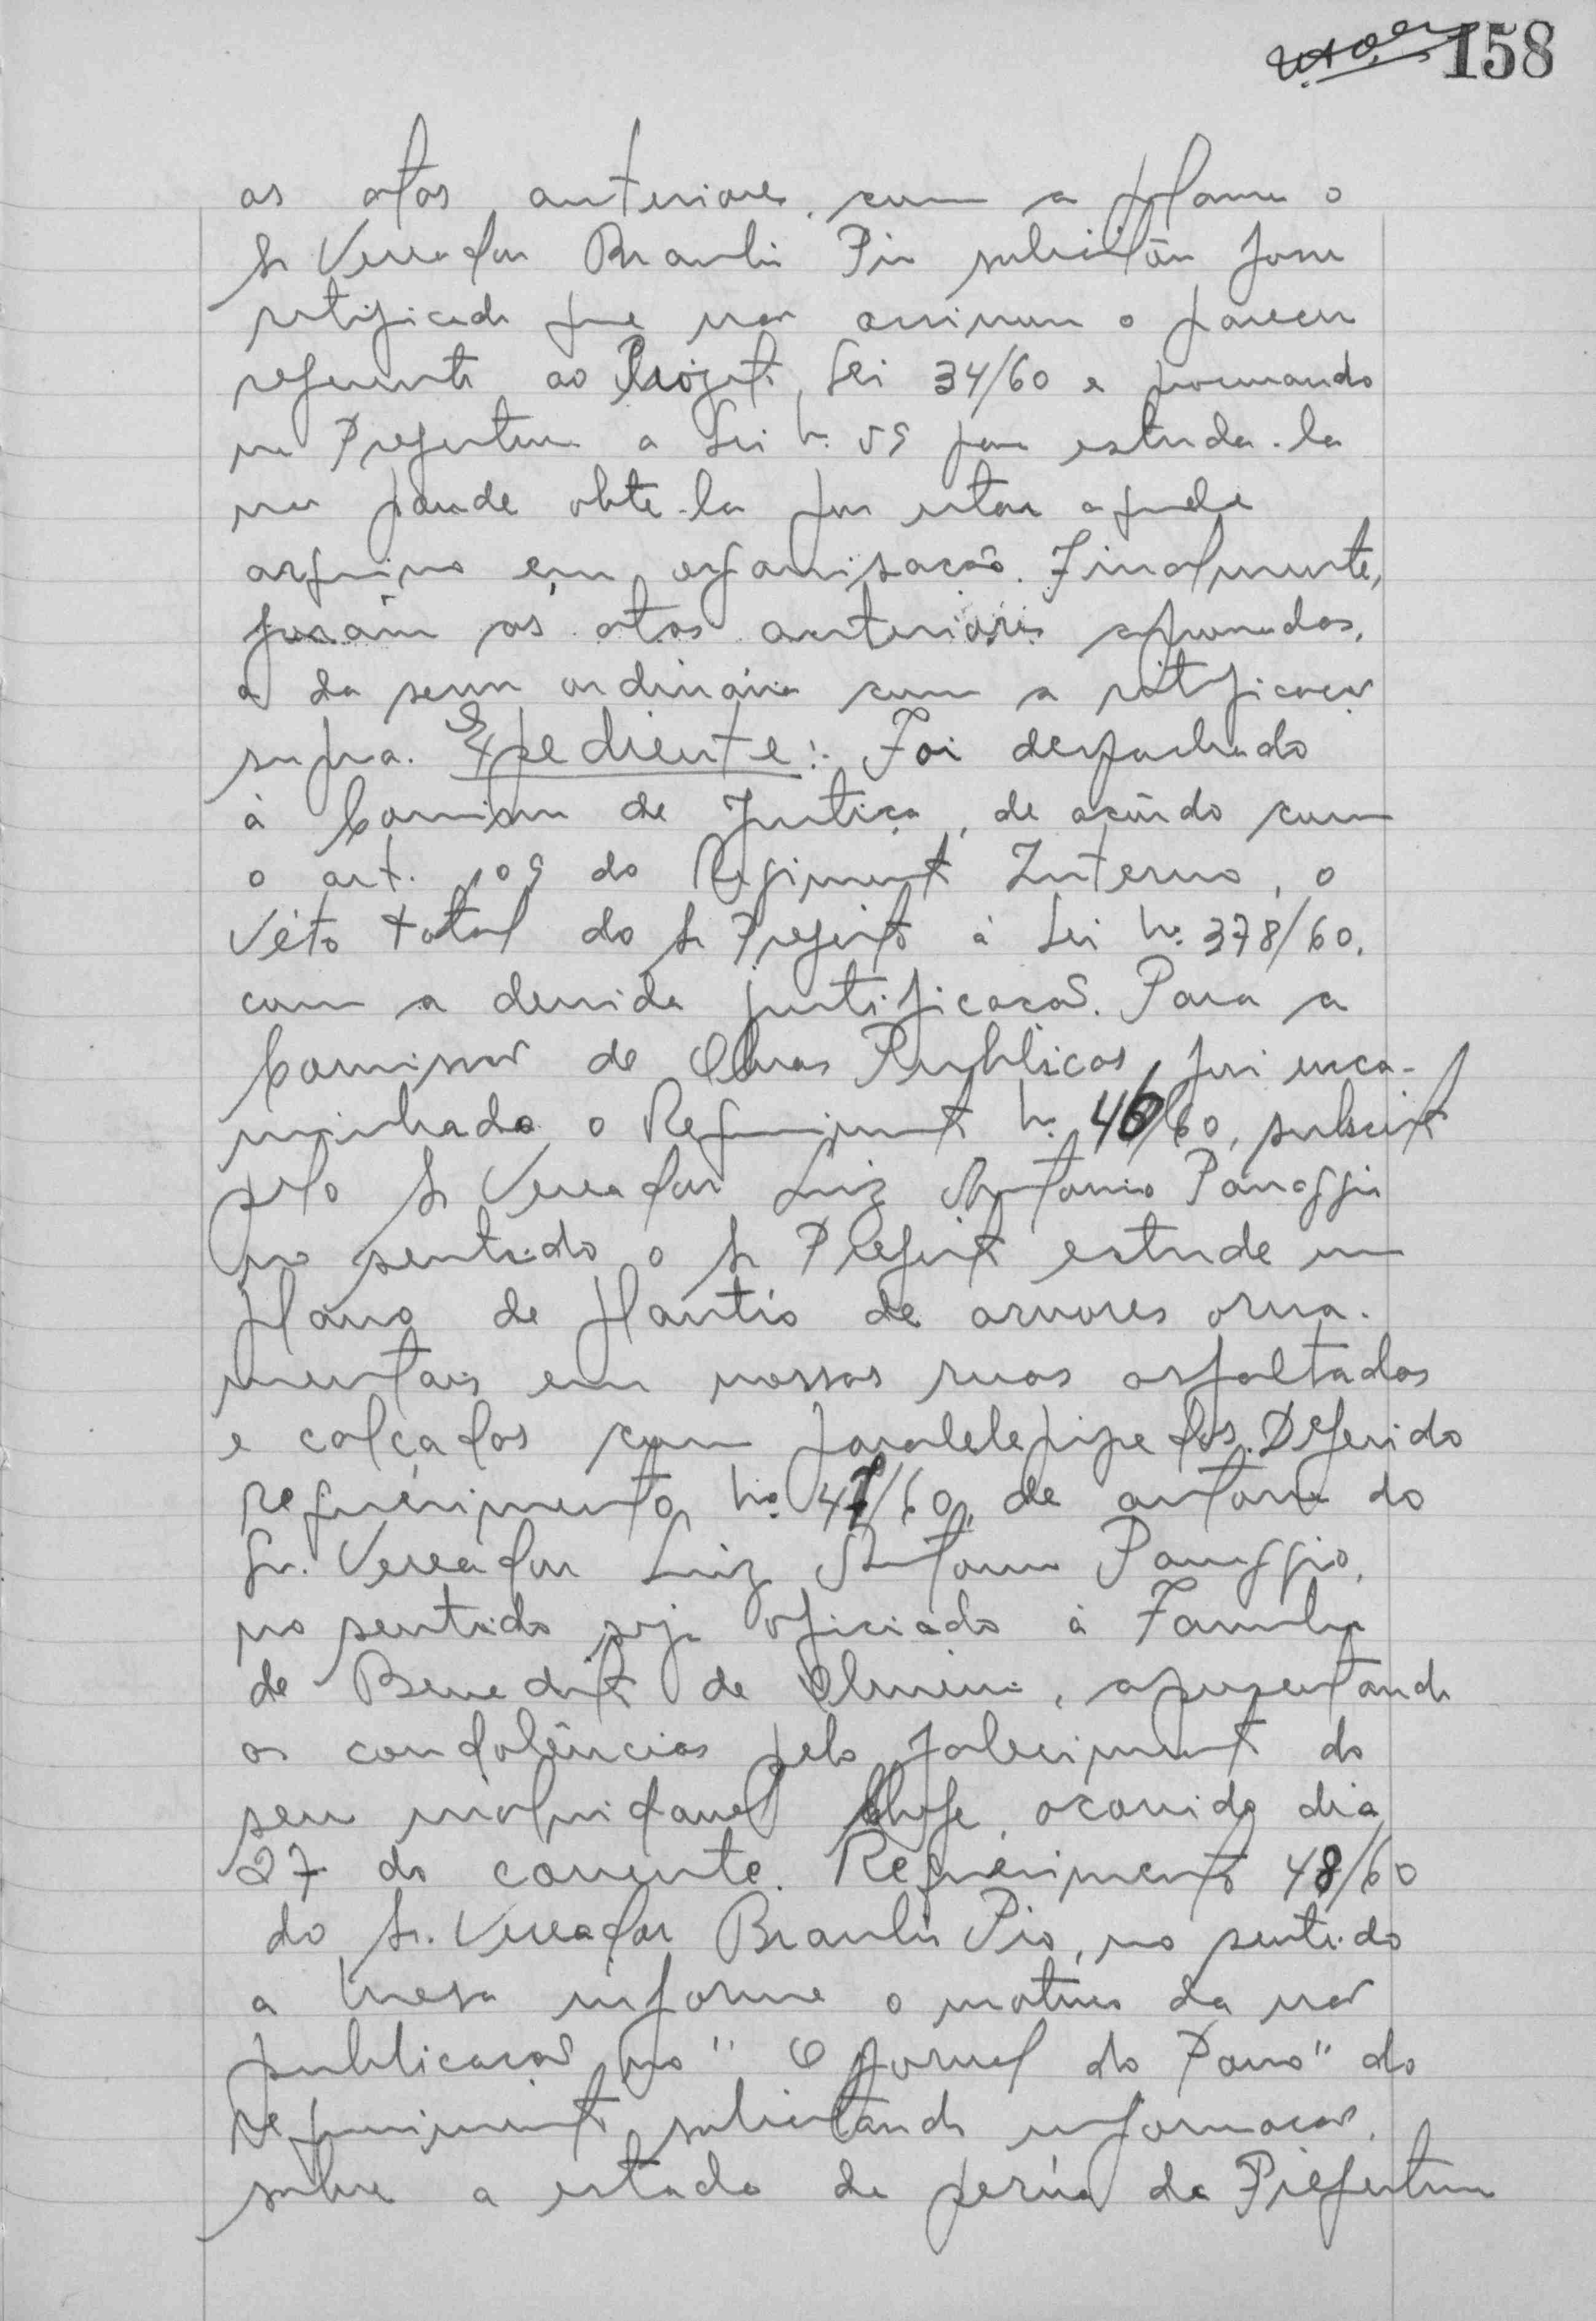 158
as atas anteriores, com a palavra o
Sr Vereador Braulio Pio solicitou fosse
retificado que não assinou o parecer
referente ao Projeto Lei 34/60 e procurando
na Prefeitura a Lei nº 59 para estuda-la
não poude obte-la por estar aquele
arquivo em organisação. Finalmente,
foram as atas anteriores aprovadas,
a da sessão ordinária com a retificação
supra. Expediente:- Foi despachado
à Comissão de Justiça, de acôrdo com
o art. 109 do Regimento Interno, o
Véto total do Sr Prefeito à Lei nº 378/60,
com a devida justificação. Para a
Comissão de Obras Publicas foi enca-
minhado o Requerimento nº 46/60, subscrito
pelo Sr Vereador Luiz Antonio Panaggio
no sentido o Sr Prefeito estude um
plano de plantio de arvores orna-
mentais em nossas ruas asfaltadas
e calçadas com paralelepipedos. Deferido
requerimento nº 47/60, de autoria do
Sr. Vereador Luiz Antonio Panaggio,
no sentido seja oficiado à Familia
de Benedito de Oliveira, apresentando
as condolências pelo falecimento do
seu inolvidavel Chefe, ocorrido dia
27 do corrente. Requerimento 48/60
do Sr. Vereador Braulio Pio, no sentido
a Mesa informe o motivo da não
publicação no "O Jornal do Povo" do
requerimento solicitando informação
sobre o estado da perúa da Prefeitura